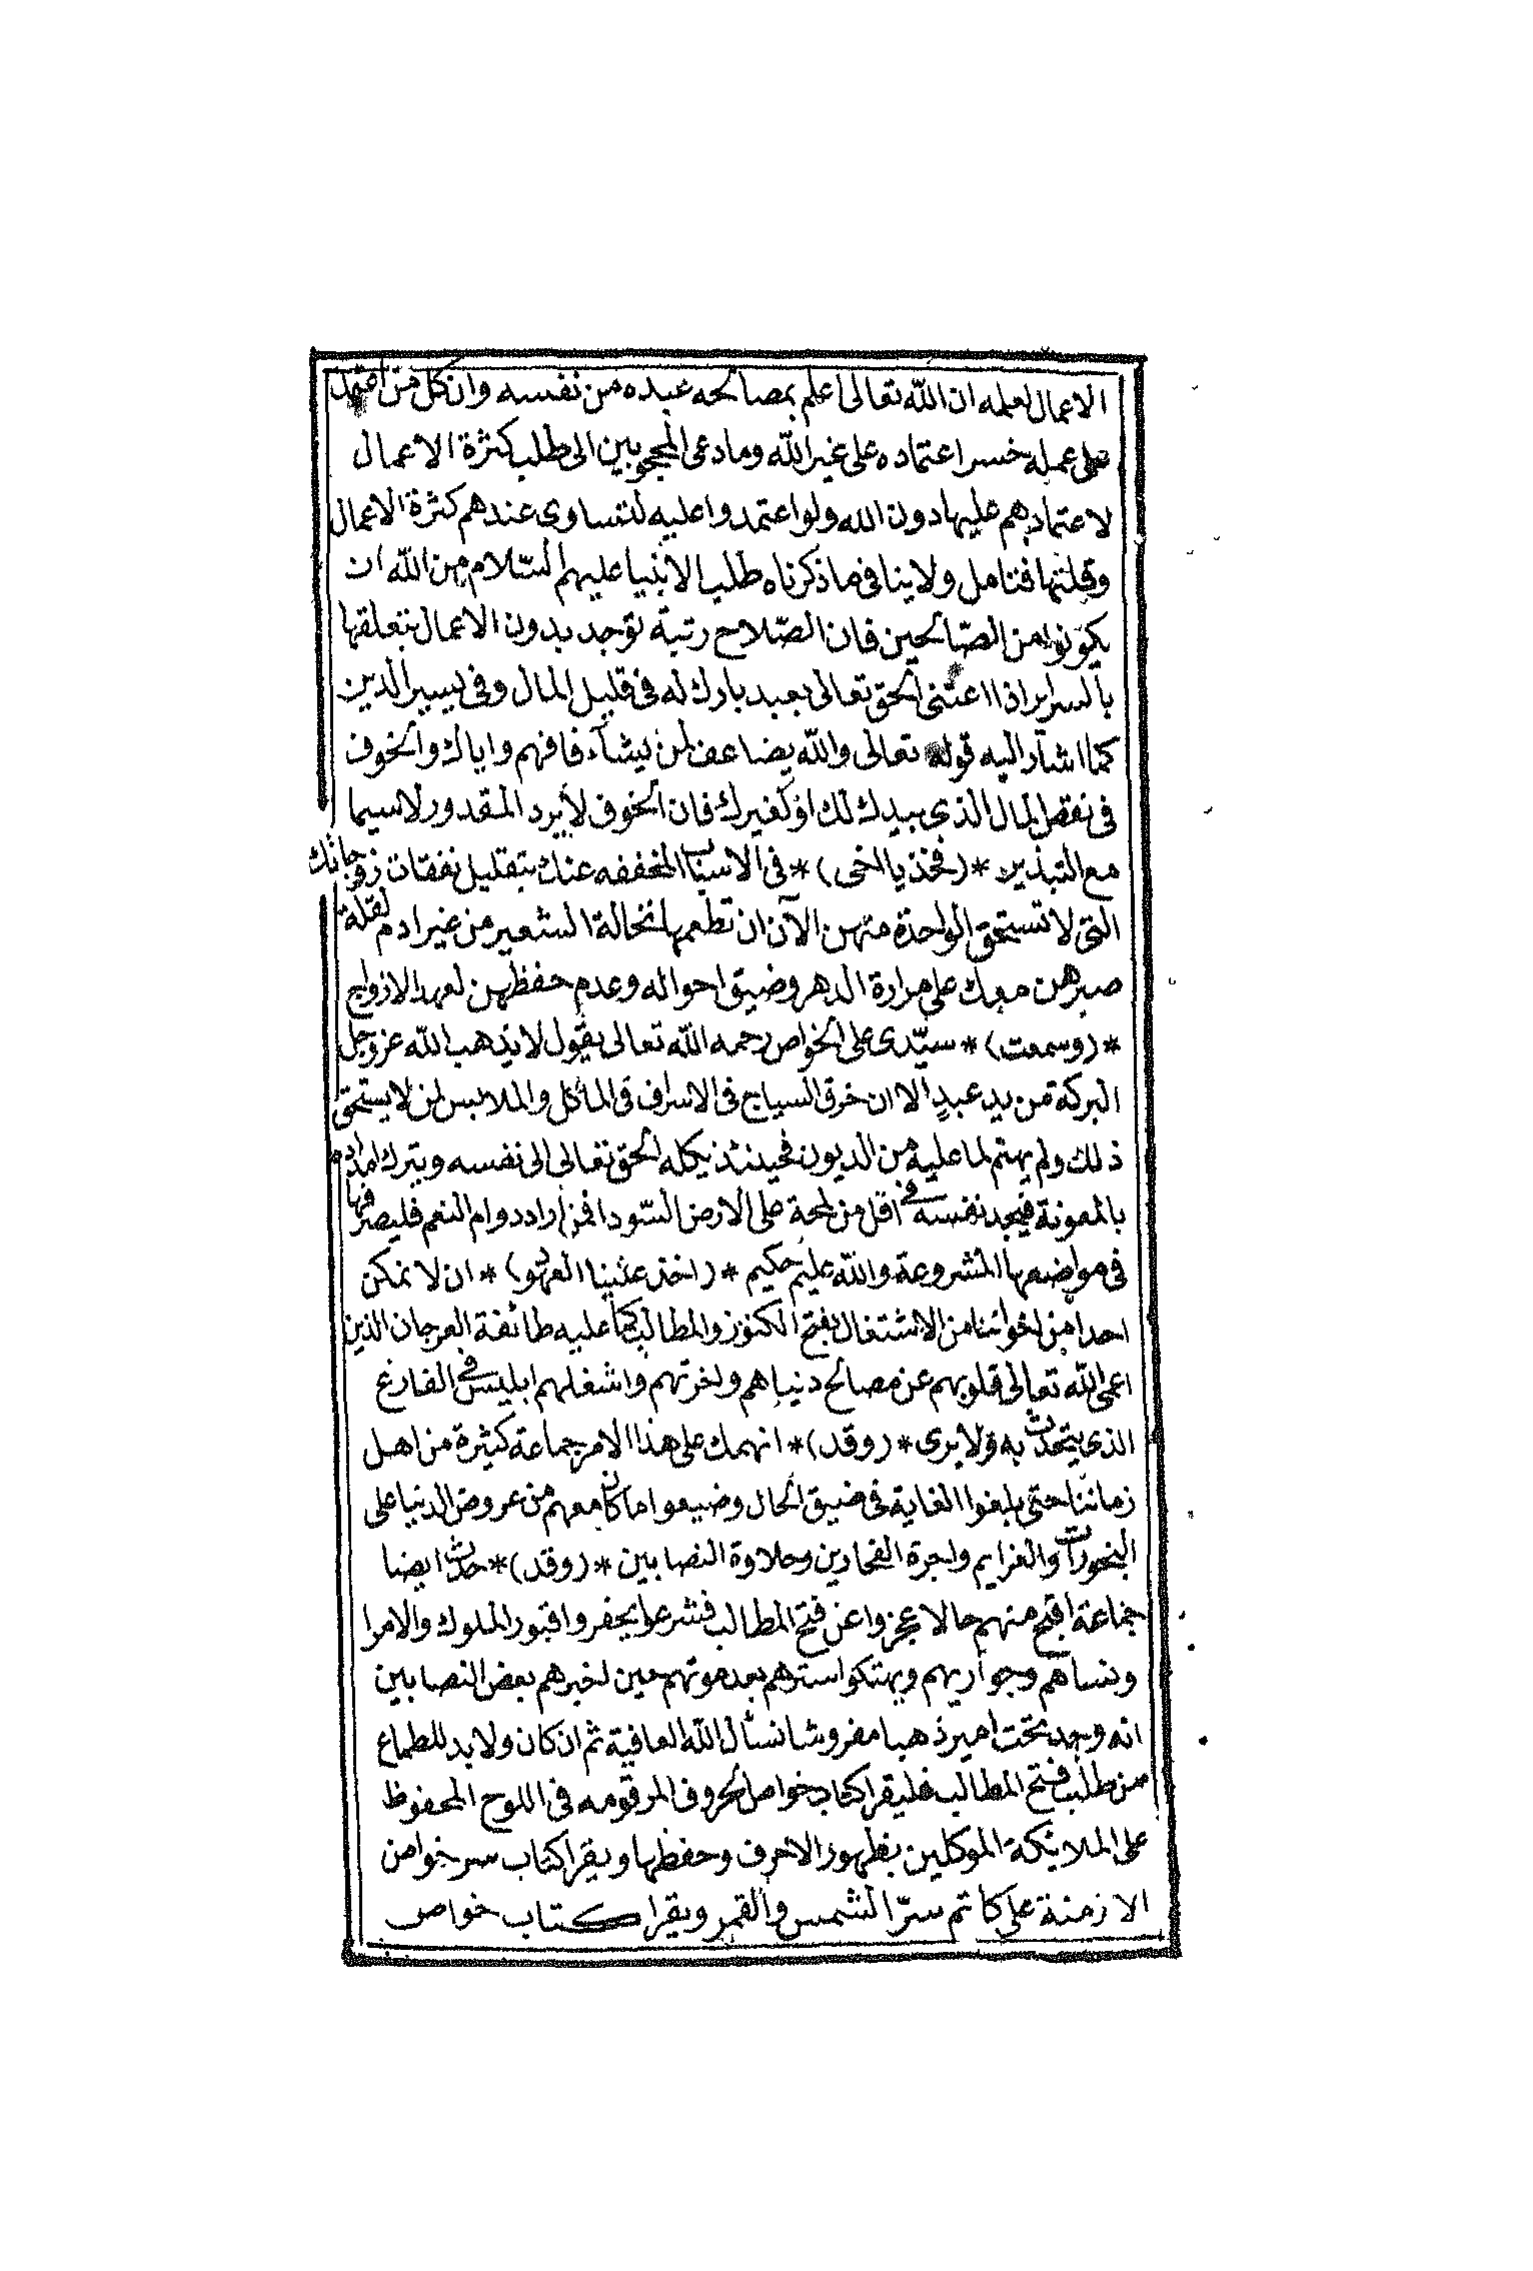 الاعمال لعلمه ان الله تعالى اعلم بمصالحه عبده من نفسه وان كل من اعتمد
على عمله خسر اعتماده على غير الله وما دعى المحجوبين الى طلب كثرة الاعمال
لاعتمادهم عليها دون الله ولو اعتمدوا عليه لتساوى عندهم كثرة الاعمال
وقلتها فتامل ولا ينافى ما ذكرناه طلب الانبيا عليهم السّلام من الله ان
يكونوا من الصّالحين فان الصّلاح رتبة توجد بدون الاعمال بتعلقها
بالسراير اذا اعتنى الحق تعالى بعبد بارك له فى قليل المال وفى يسير الدين
كما اشار اليه قوله تعالى والله يضاعف لمن يشآء فافهم واياك والخوف
فى نقص المال الذى بيدك لك او لغيرك فان الخوف لا يرد المقدور لاسيما
مع التبذير * (فخذ يا اخى) * فى الاسباب المخففه عنك بتقليل نفقات زوجاتك
التى لا تستحق الواحدة منهن الآن ان تطعمها نخالة الشعير من غير ادم لقلة
صبرهن معك على مرارة الدهر وضيق احواله وعدم حفظهن لعهد الازواج
* (وسمعت) * سيّدى على الخواص رحمه الله تعالى يقول لا يذهب الله عز وجل
البركة من يد عبدٍ الا ان خرق السياج فى الاسراف فى المأكل والملابس لمن لا يستحق
ذلك ولم يهتم لما عليه من الديون فحينئذ يكله الحق تعالى الى نفسه ويترك امداده
بالمعونة فيجد نفسه فى اقل من لمحة على الارض السّودا فمن اراد دوام النعم فليصرفها
فى مواضعها المشروعة والله عليم حكيم * (اخذ علينا العهود) * ان لا نمكن
احدا من اخواننا من الاشتغال بفتح الكنوز والمطالب كما عليه طائفة العرجان الذين
اعمى الله تعالى قلوبهم عن مصالح دنياهم واخرتهم واشغلهم ابليس فى الفارغ
الذى يتحدث به ولا يرى * (وقد) * انهمك على هذا الامر جماعة كثيرة من اهل
زماننا حتى بلغوا الغاية فى ضيق الحال وضيعوا ما كان معهم من عروض الدنيا على
البخورات والعزايم واجرة الفحارين وحلاوة النصابين * (وقد) * حدث ايضا
جماعة اقبح منهم حالا عجزوا عن فتح المطالب فشرعوا يحفروا قبور الملوك والامرا
ونساهم وجواريهم ويهتكوا سترهم بعد موتهم حين اخبرهم بعض النصابين
انه وجد تحت امير ذهبا مفروشا نسأل الله العافية ثم ان كان ولابد للطماع
من طلب فتح المطالب فليقرا كتاب خواص الحروف المرقومه فى اللوح المحفوظ
على الملايكة الموكلين بظهور الاحرف وحفظها ويقرا كتاب سر خواص
الازمنة على كاتم سرّ الشمس والقمر ويقرا كتاب خواص